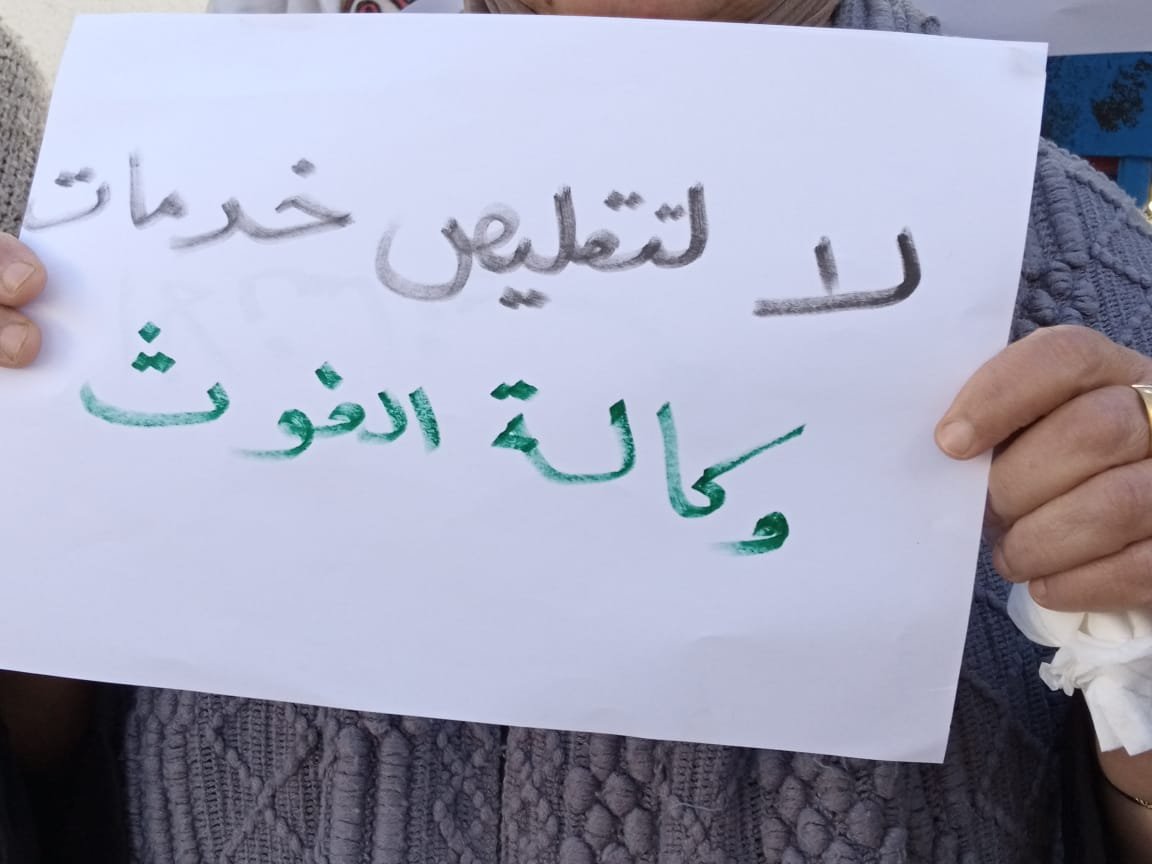 لا لتقليص خدمات
وكالة الغوث